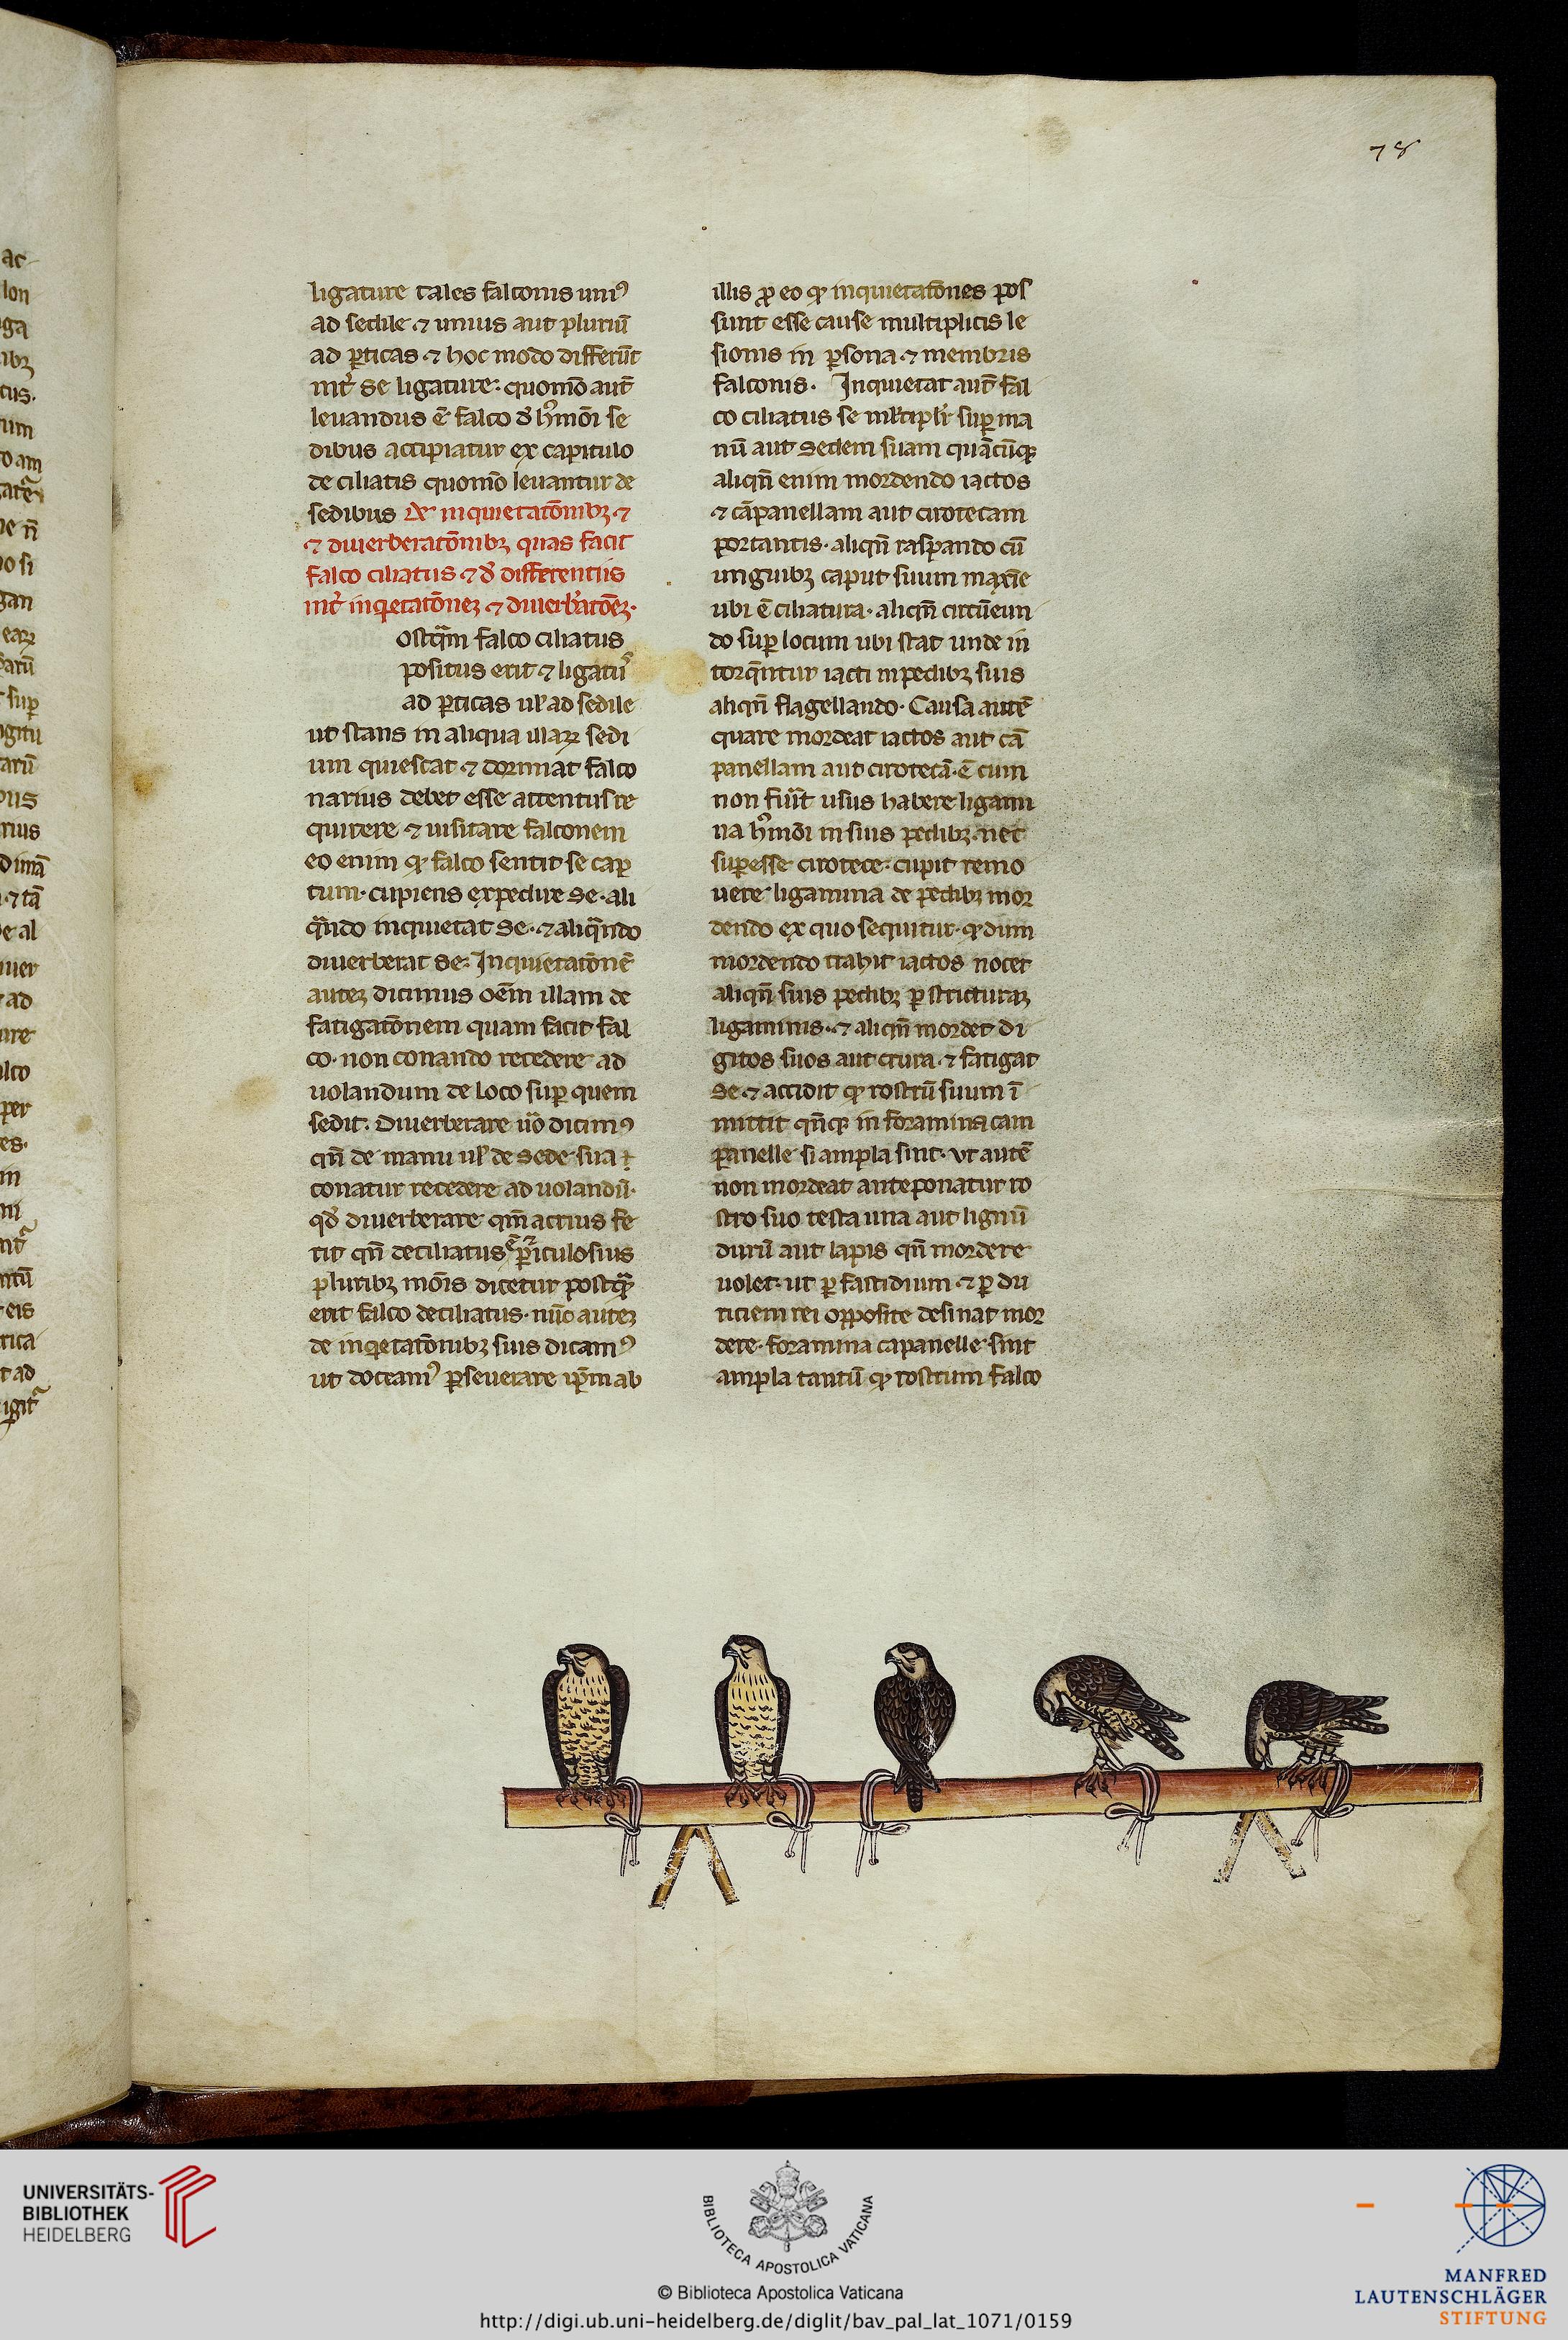 78
ligature tales falconis uniꝰ
ad sedile ⁊ unius aut pluriū
ad ꝑticas ⁊ hoc modo differūt
int̄ se ligature. quomō aut̄
leuandus ē falco đ hꝰmōi se
dibus accipiatur ex capitulo
de ciliatis quomō leuantur de
sedibus De inquietatōnibꝫ ⁊
⁊ diuerberatōnibꝫ quas facit
falco ciliatus ⁊ đ differentiis
int̄ inqietatōnes ⁊ diuerb̄atōēs.
ostq̄m falco ciliatus
positus erit ⁊ ligatuˢ
ad ꝑticas ul̓ ad sedile
ut stans in aliqua illaꝝ sedi
um quiescat ⁊ dormiat falco
narius debet esse attentus re
quirere ⁊ uisitare falconem
eo enim ꝙ falco sentit se cap
tum. cupiens expedire se. ali
q̄ndo inquietat se. ⁊ aliq̄ndo
diuerberat se. Inquietatōnē
auteꝫ dicimus oēm illam de
fatigatōnem quam facit fal
co. non conando recedere ad
uolandum de loco suꝑ quem
sedit. Diuerberare ūo dicimꝰ
qn̄ de manu ul̓ de sede sua
conatur recedere ad uolandū.
qđ diuerberare qm̄ acrius fe
rit qn̄ deciliatus ē ꝑiculosius
pluribꝫ mōis dicetur postq̄
erit falco deciliatus. nūc auteꝫ
de inqietatōnibꝫ suis dicamꝰ
ut doceamꝰ ꝑseuerare ip̄m ab
illis ꝓ eo ꝙ inquietatōnes pos
sunt esse cause multiplicis le
sionis in ꝑsona ⁊ membris
falconis. Inquietat aut̄ fal
co ciliatus se ml̓tiplr̓ suꝑ ma
nū aut sedem suam quācūqꝫ
aliqn̄ enim mordendo iactos
⁊ cāpanellam aut cirotecam
portantis. aliqn̄ raspando cū
unguibꝫ caput suum maxīe
ubi ē ciliatura. aliqn̄ circūeun
do suꝑ locum ubi stat unde in
torq̄ntur iacti in pedibꝫ suis
aliqn̄ flagellando. Causa autē
quare mordeat iactos aut cā
panellam aut cirotecā. ē cum
non fuīt usus habere ligami
na hꝰmōi in suis pedibꝫ. nec
suꝑesse cirotece. cupit remo
uere ligamina de pedibꝫ mor
dendo ex quo sequitur. ꝙ dum
mordendo trahit iactos nocet
aliqn̄ suis pedibꝫ ꝑ stricturaꝫ
ligaminis. ⁊ aliqn̄ mordet di
gitos suos aut crura. ⁊ fatigat
se. ⁊ accidit ꝙ rostrū suum ī
mittit qn̄qꝫ in foramina cam
panelle si ampla sint. vt autē
non mordeat anteponatur ro
stro suo testa una aut lignū
durū aut lapis qn̄ mordere
uolet. ut ꝑ fastidium ⁊ ꝑ du
riciem rei opposite desinat mor
dere. foramina capanelle sint
ampla tantū ꝙ rostrum falco
UNIVERSITÄTS-
BIBLIOTHEK
HEIDELBERG
BIBLIOTECA APOSTOLICA VATICANA
© Biblioteca Apostolica Vaticana
http://digi.ub.uni-heidelberg.de/diglit/bav_pal_lat_1071/0159
MANFRED
LAUTENSCHLÄGER
STIFTUNG